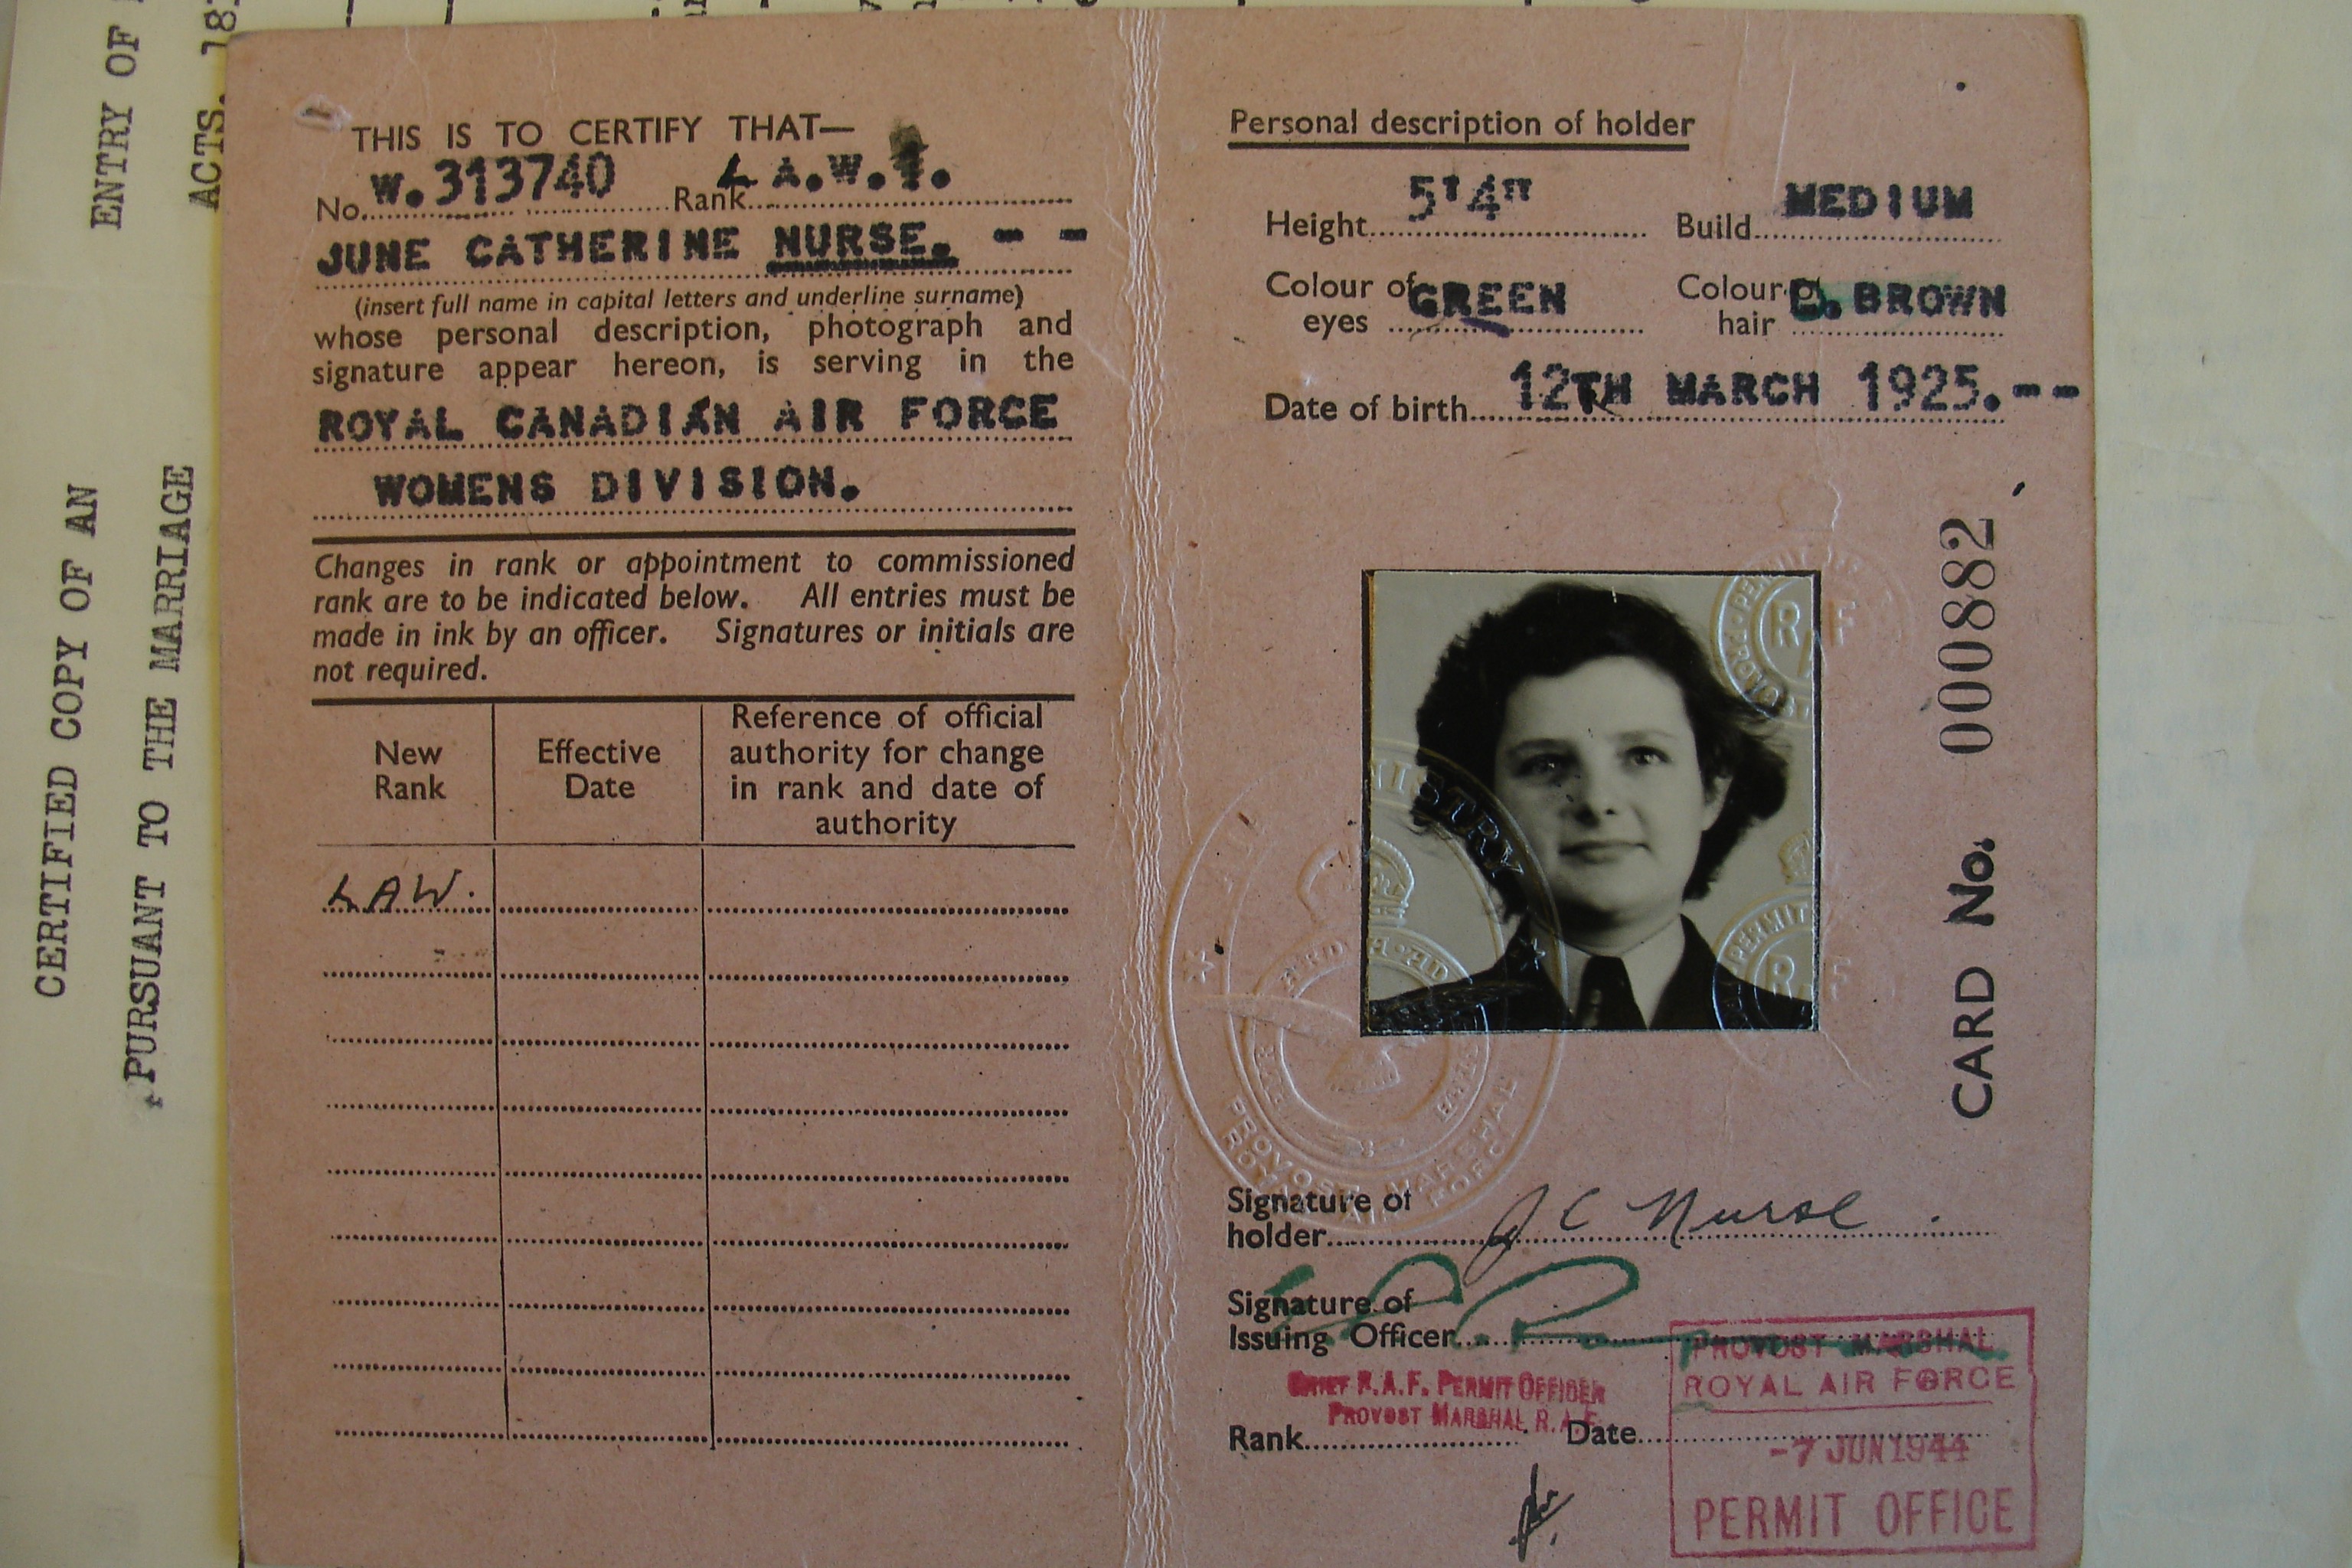 CERTIFIED COPY OF AN
ENTRY OF
PURSUANT TO THE MARRIAGE
ACTS,
THIS IS TO CERTIFY THAT—
No. W.313740 Rank L A.W.1.
JUNE CATHERINE NURSE. - -
(insert full name in capital letters and underline surname)
whose personal description, photograph and
signature appear hereon, is serving in the
ROYAL CANADIAN AIR FORCE
WOMENS DIVISION.
Changes in rank or appointment to commissioned
rank are to be indicated below. All entries must be
made in ink by an officer. Signatures or initials are
not required.
New
Rank
Effective
Date
Reference of official
authority for change
in rank and date of
authority
LAW.
Personal description of holder
Height 5'4" Build MEDIUM
Colour of eyes GREEN Colour of hair D. BROWN
Date of birth 12TH MARCH 1925.--
CARD No. 000882
AIR MINISTRY
PROVOST MARSHAL
ROYAL AIR FORCE
PERMIT
R F
Signature of
holder J C Nurse
Signature of
Issuing Officer
CHIEF R.A.F. PERMIT OFFICER
PROVOST MARSHAL R.A.F.
Rank Date
PROVOST MARSHAL
ROYAL AIR FORCE
-7 JUN 1944
PERMIT OFFICE